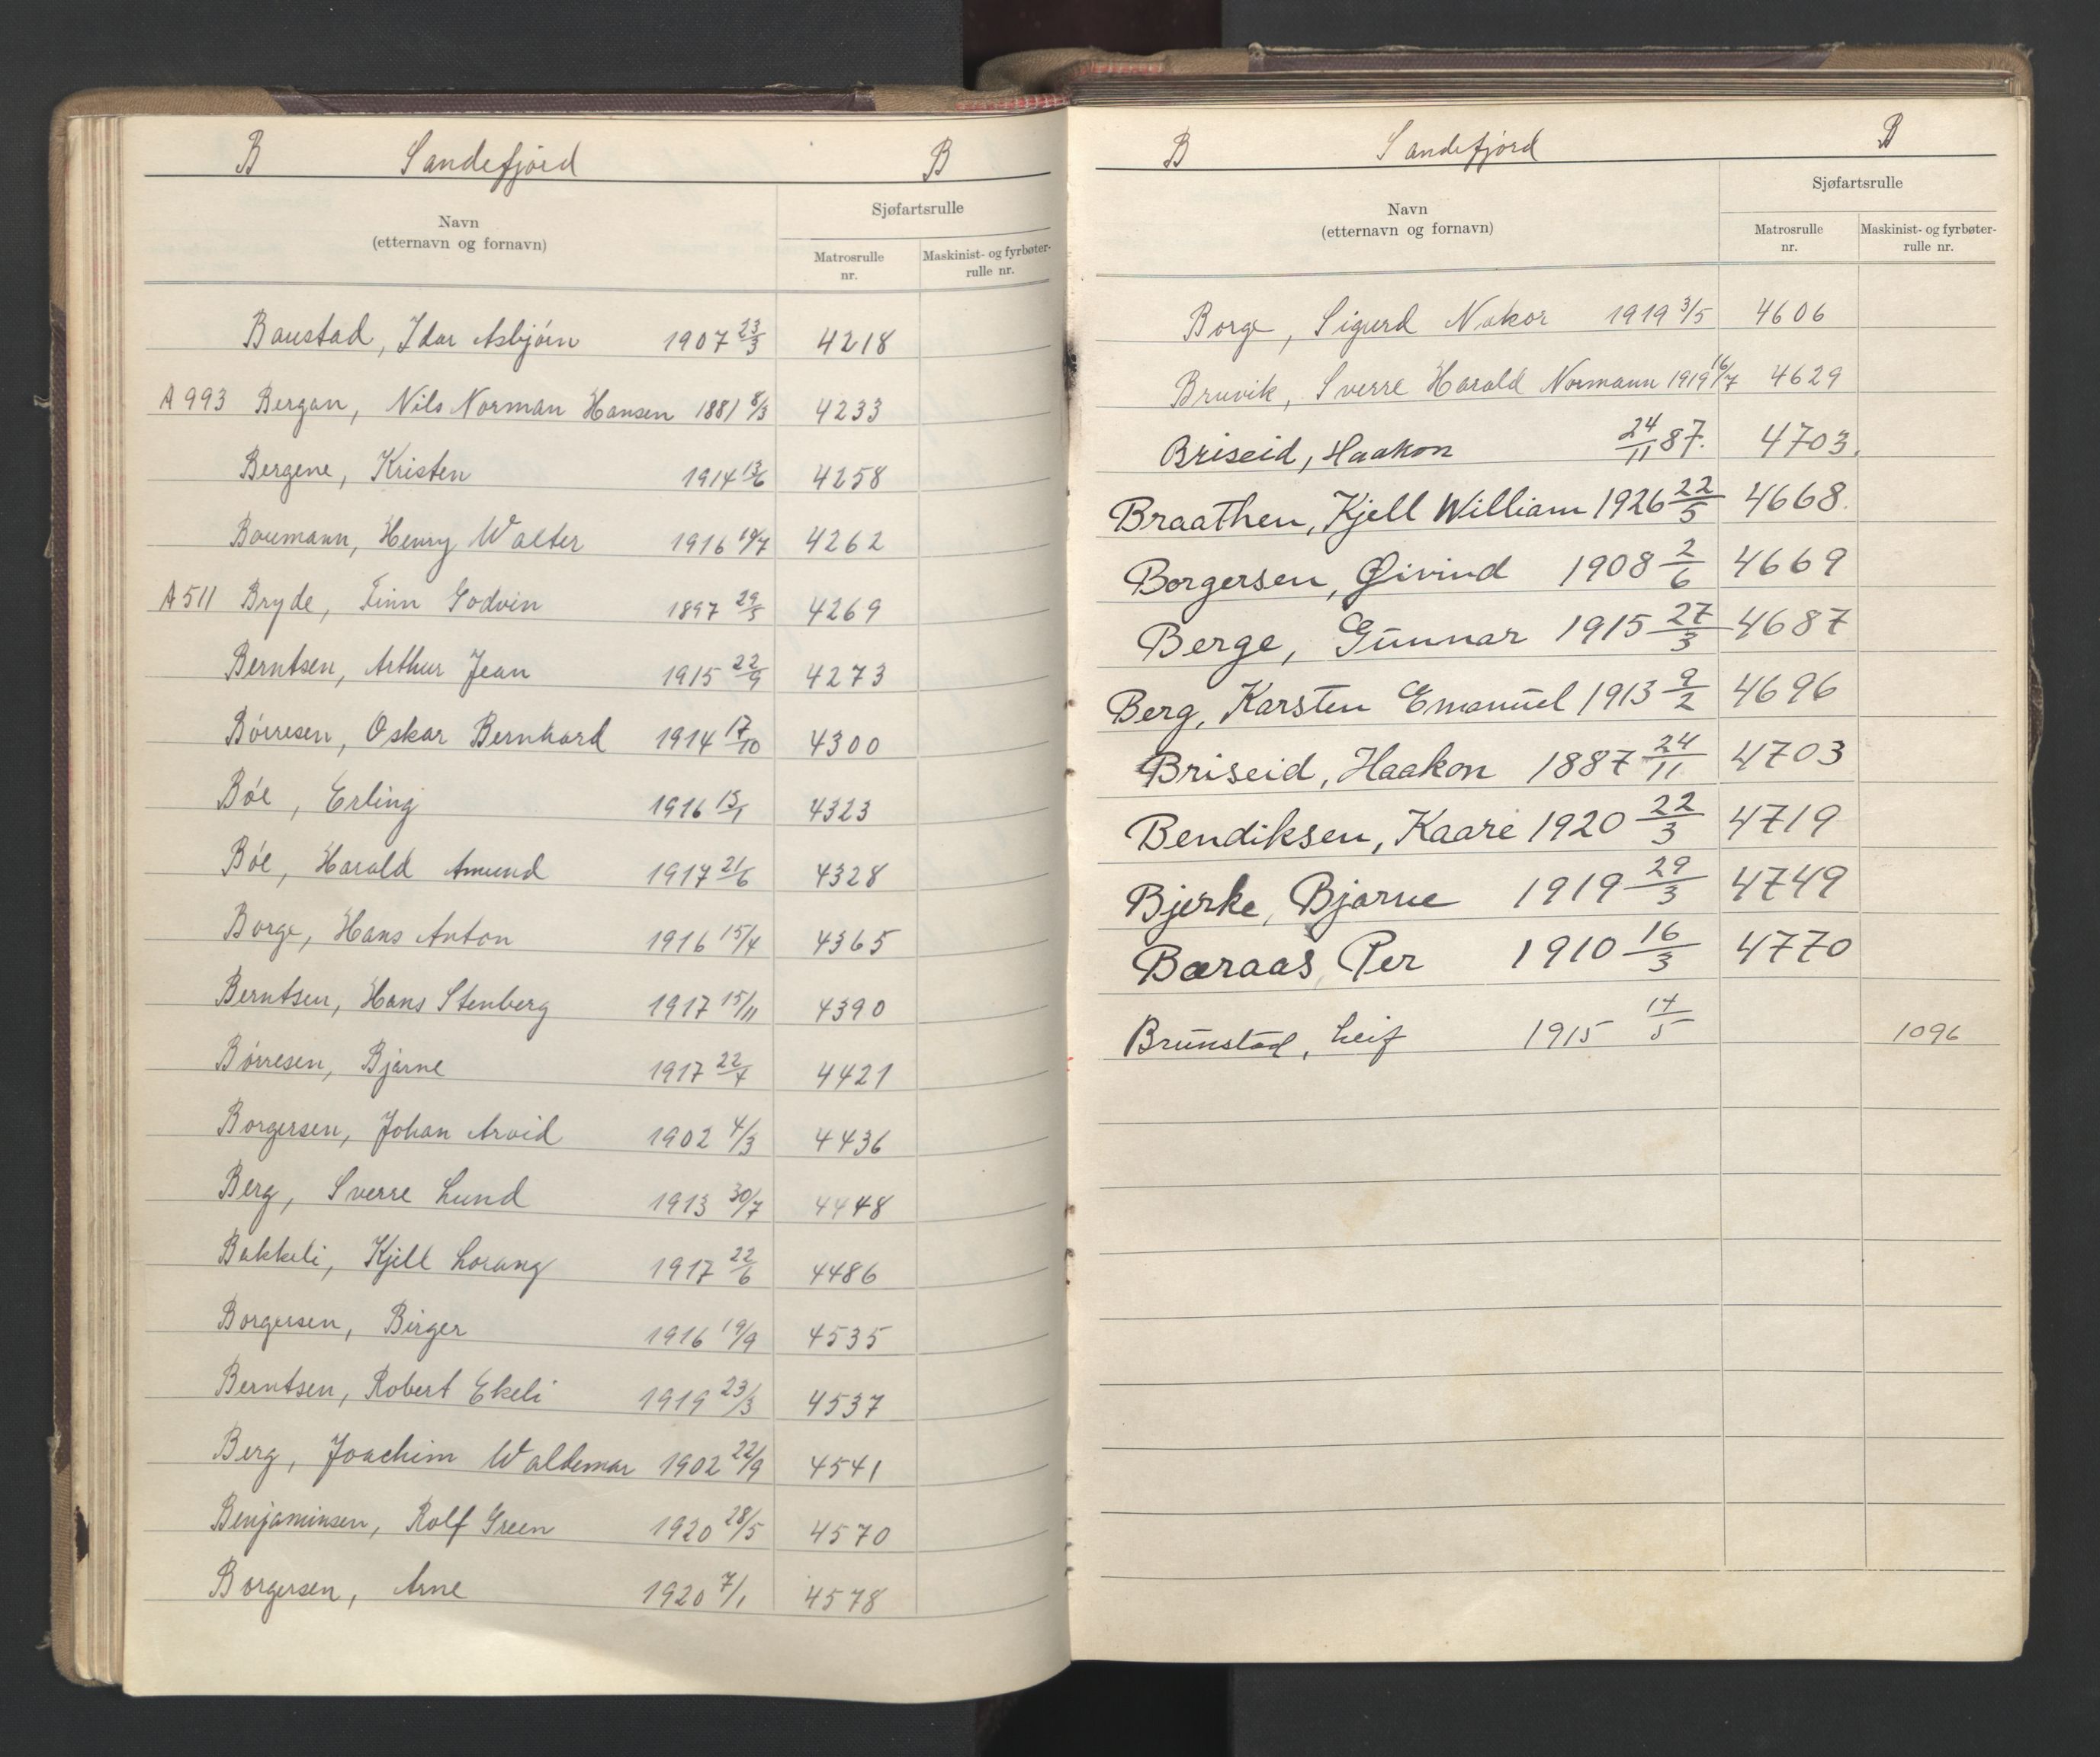 B Sandefjord B
Navn
(etternavn og fornavn)
Sjøfartsrulle
Matrosrulle
nr.
Maskinist- og fyrbøter-
rulle nr.
Baustad, Idar Asbjørn 1907 23/3 4218
A 993 Bergan, Nils Norman Hansen 1881 8/3 4233
Bergene, Kristen 1914 13/6 4258
Baumann, Henry Walter 1916 19/7 4262
A 511 Bryde, Finn Godvin 1897 29/5 4269
Berntsen, Arthur Jean 1915 22/9 4273
Børresen, Oskar Bernhard 1914 17/10 4300
Bøe, Erling 1916 13/1 4323
Bøe, Harald Amund 1917 21/6 4328
Borge, Hans Anton 1916 15/4 4365
Berntsen, Hans Stenberg 1917 15/11 4390
Børresen, Bjarne 1917 22/4 4421
Borgersen, Johan Arvid 1902 4/3 4436
Berg, Sverre Lund 1913 30/7 4448
Bakkeli, Kjell Lorang 1917 22/6 4486
Borgersen, Birger 1916 19/9 4535
Berntsen, Robert Ekeli 1919 23/3 4537
Berg, Joachim Waldemar 1902 22/9 4541
Benjaminsen, Rolf Green 1920 28/5 4570
Borgersen, Arne 1920 7/1 4578
B Sandefjord B
Navn
(etternavn og fornavn)
Sjøfartsrulle
Matrosrulle
nr.
Maskinist- og fyrbøter-
rulle nr.
Borge, Sigurd Nakor 1919 3/5 4606
Bruvik, Sverre Harald Normann 1919 16/7 4629
Briseid, Haakon 24/11 87. 4703.
Braathen, Kjell William 1926 22/5 4668.
Borgersen, Øivind 1908 2/6 4669
Berge, Gunnar 1915 27/3 4687
Berg, Karsten Emanuel 1913 9/2 4696
Briseid, Haakon 1887 24/11 4703
Bendiksen, Kaare 1920 22/3 4719
Bjerke, Bjarne 1919 29/3 4749
Bæraas, Per 1910 16/3 4770
Brunstad, Leif 1915 14/5 1096